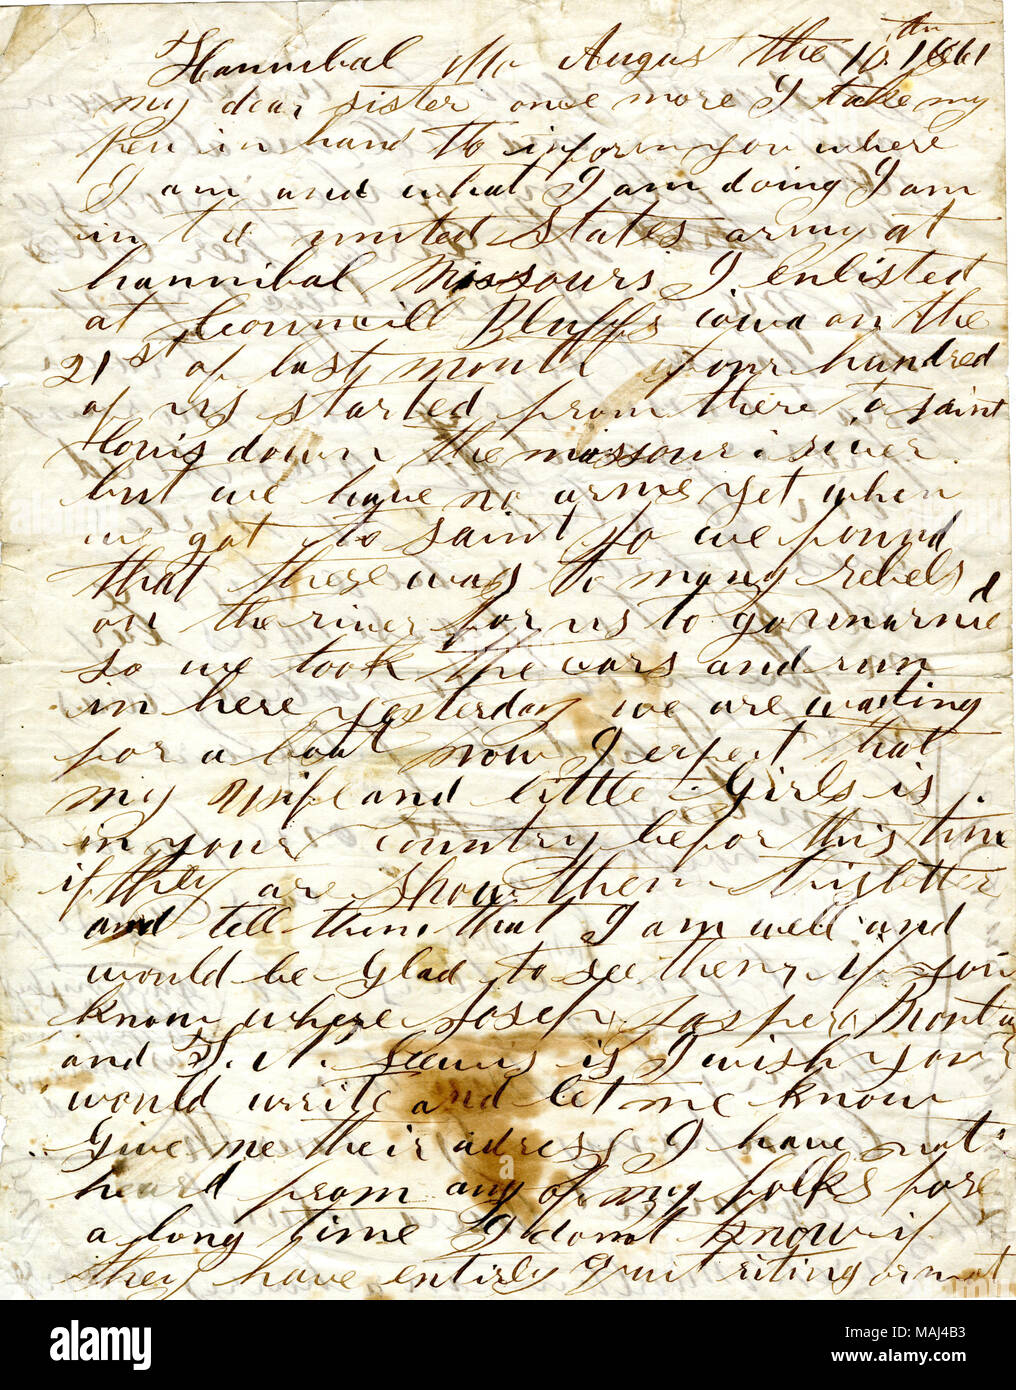 Hannibal Mo Augus the 10th 1861
my dear sister once more I take my
pen in hand to inform you where
I am and what I am doing I am
in united States army at
hannibal Missouri I enlisted
at Council Bluffs iowa on the
21st of last month four hundred
of us started from there to saint
Louis down the missouri river
but we have no arms yet when
we got to saint Jo we found
that there was to many rebels
on the river for us to go unarmed
so we took the cars and run
in here yesterday we are waiting
for a boat now I expect that
my wife and little Girls is
in your country befor this time
if they are show them this letter
and tell them that I am well and
would be Glad to see them if you
know where Joseph Jasper
and is I wish you
would write and let me know
Give me their adress I have not
heard from any of my folks fore
a long time I dont know if
they have entirely quit riting or not
alamy
MAJ4B3
www.alamy.com